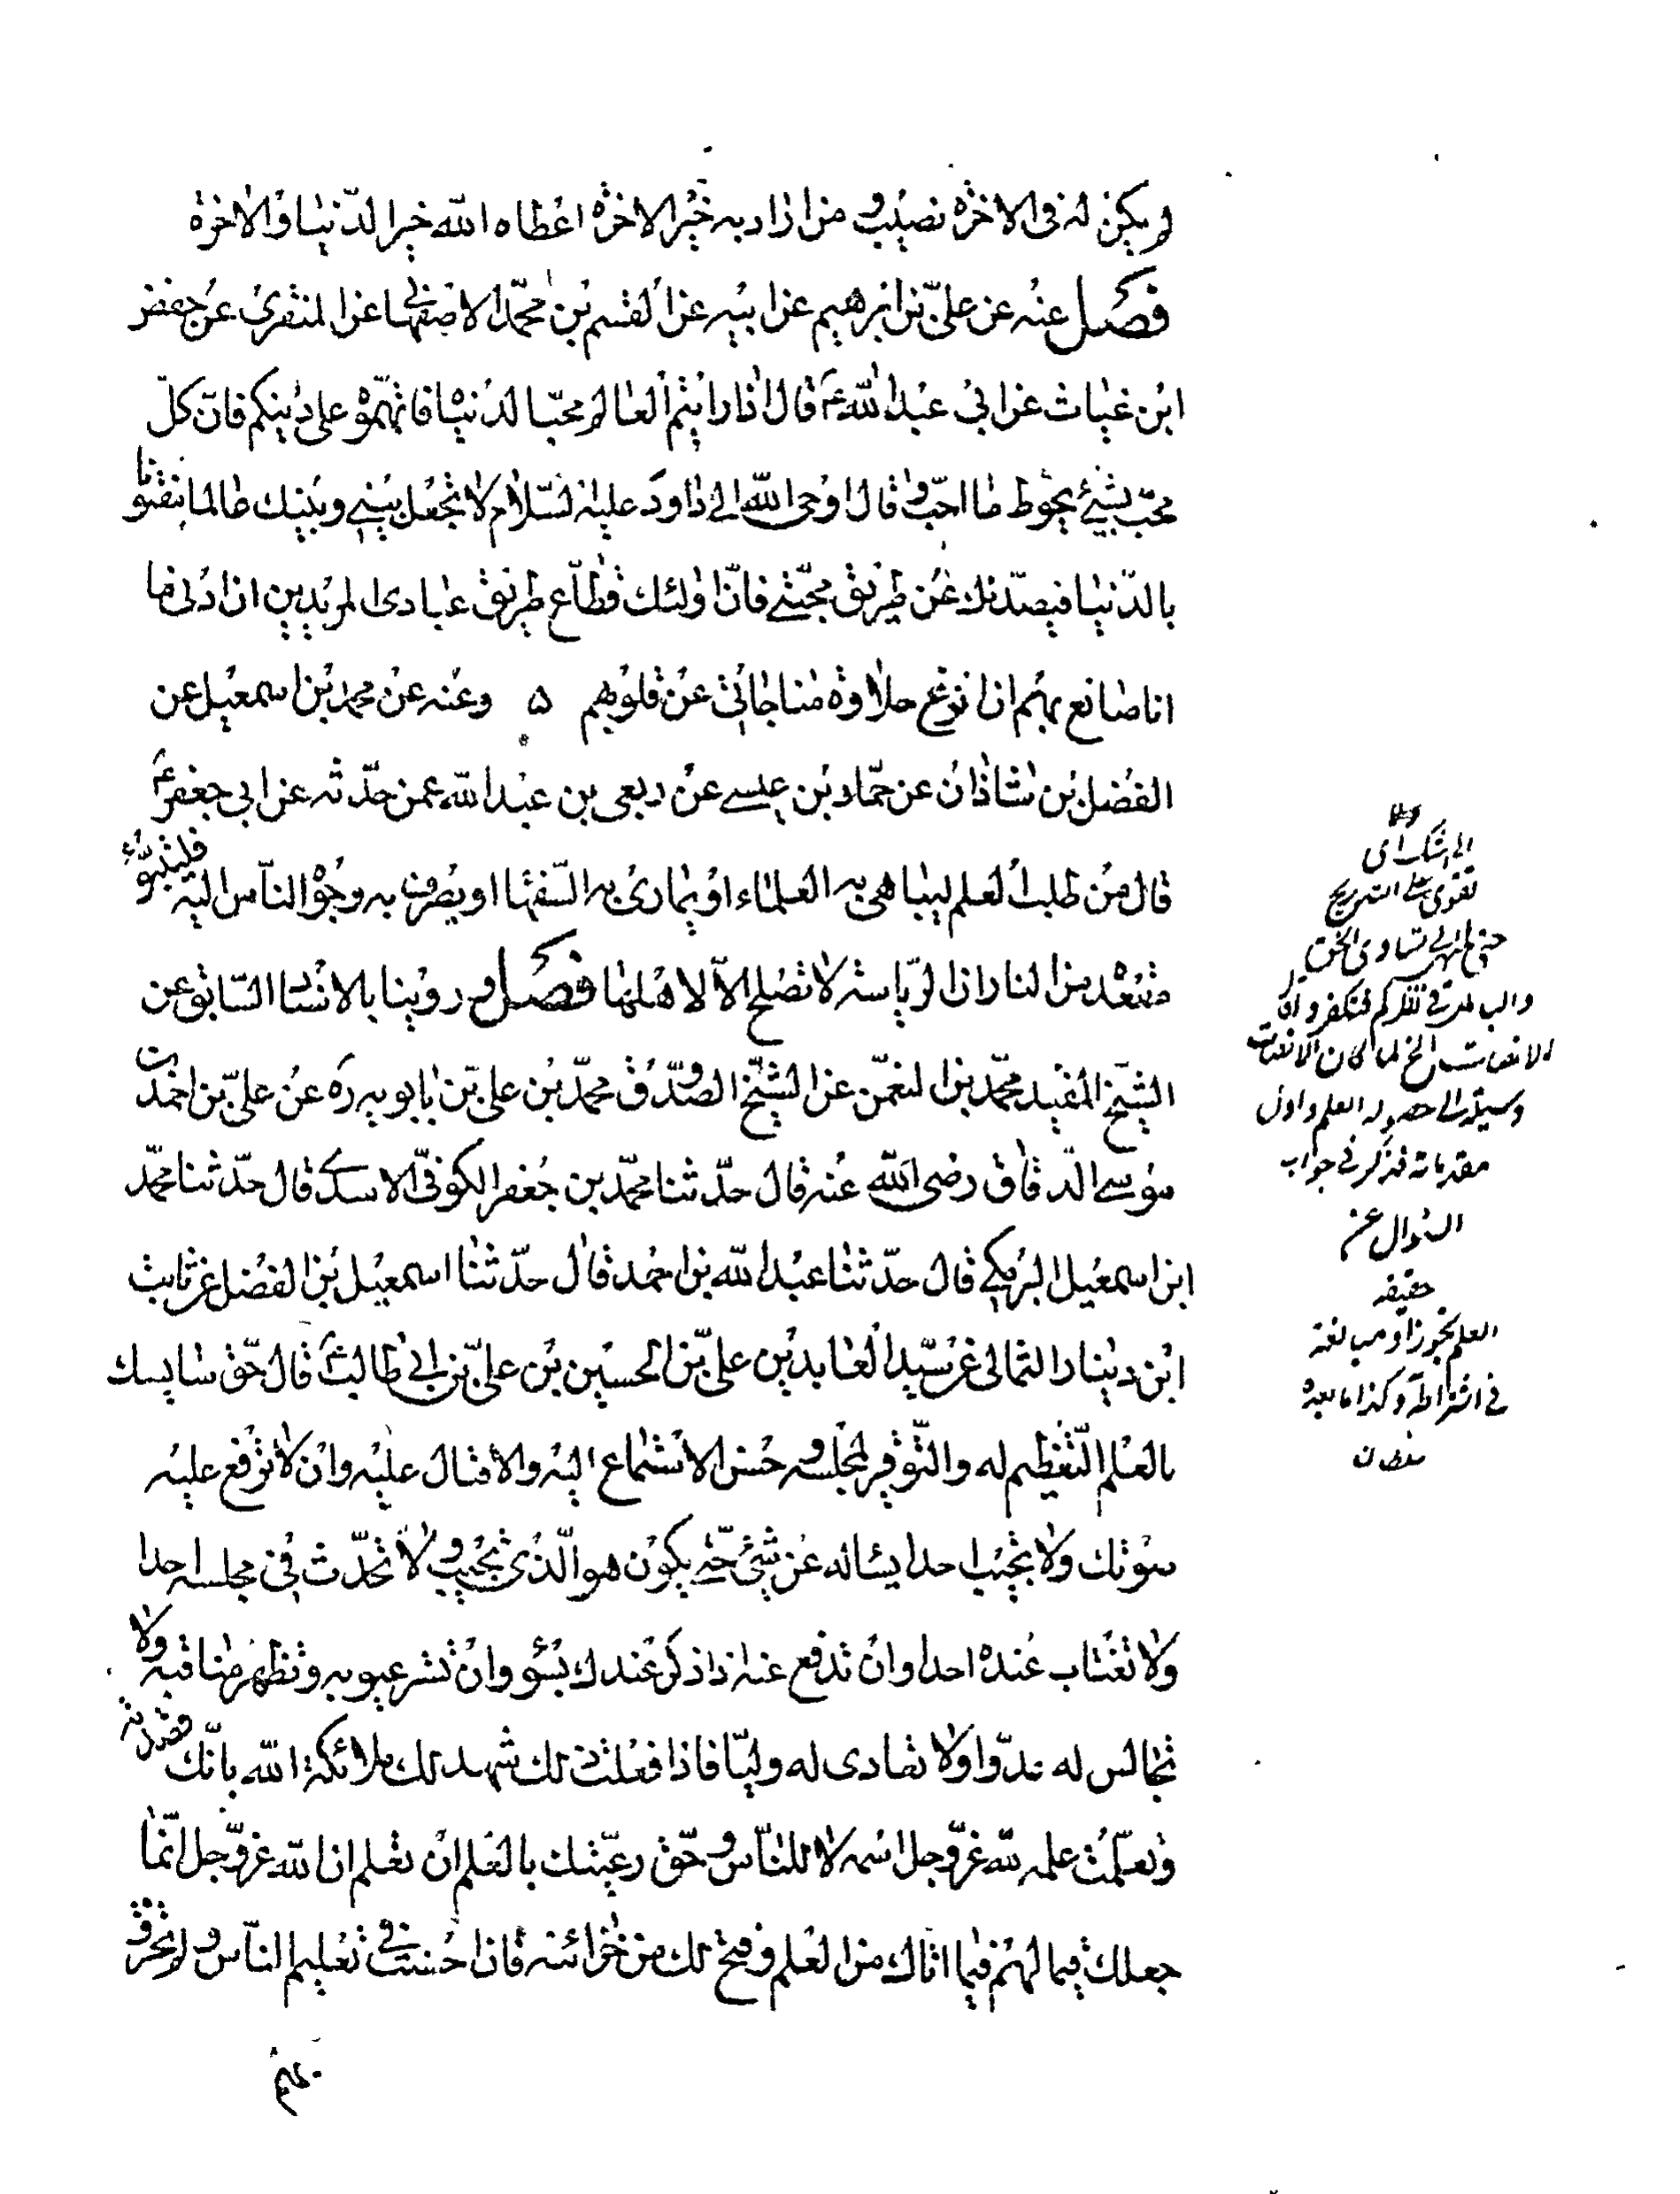 لم يكن له فى الاخرة نصيب و من اراد به خير الاخرة اعطاه الله خير الدّنيا و الاخرة
فصل عنه عن علىّ بن ابرهيم عن ابيه عن القسم بن محمّد الاصفهانى عن المنقرى عن حفص
ابن غياث عن ابى عبد الله ع قال اذا رايتم العالم محبّا لدنياه فاتّهموه على دينكم فانّ كلّ
محبّ بشيئ يحوط ما احبّ و قال اوحى الله الى داود عليه السّلام لا تجعل بينى و بينك عالما مفتونا
بالدّنيا فيصدّنك عن طريق محبّتى فانّ اولئك قطّاع طريق عبادى المريدين ان ادنى ما
انا صانع بهم ان انزع حلاوة مناجاتى عن قلوبهم ۵ و عنه عن محمد بن اسمعيل عن
الفضل بن شاذان عن حمّاد بن عيسى عن ربعى بن عبد الله عمن حدّثه عن ابى جعفر ع
قال من طلب العلم ليباهى به العلماء او يمارى به السّفها او يصرف به وجوه النّاس اليه فليتبوّء
مقعده من النار ان الرّياسة لا تصلح الاّ لاهلها فصل و روينا بالاسناد السّابق عن
الشيخ المفيد محمّد بن النعمن عن الشيخ الصّدوق محمّد بن علىّ بن بابويه ره عن علىّ بن احمد بن
موسى الدّقاق رضى الله عنه قال حدّثنا محمّد بن جعفر الكوفىّ الاسدى قال حدّثنا محمّد
ابن اسمعيل البرمكى قال حدّثنا عبد الله بن احمد قال حدّثنا اسمعيل بن الفضل عن ثابت
ابن دينار الثمالى عن سيّد العابدين علىّ بن الحسين بن علىّ بن ابى طالب ع قال حقّ سايسك
بالعلم التّعظيم له و التّوقير لمجلسه و حسن الاستماع اليه و الاقبال عليه و ان لا ترفع عليه
صوتك و لا تجيب احدا يسئاله عن شيئ حتّى يكون هو الّذى يجيب و لا تحدّث فى مجلسه احدا
و لا تغتاب عنده احدا و ان تدفع عنه اذا ذكر عندك بسوء و ان تستر عيوبه و تظهر مناقبه و لا
تجالس له عدوّا و لا تعادى له وليّا فاذا فعلت ذلك شهد لك ملائكة الله بانّك قصدته
و تعلّمت علمه لله عزّ و جل اسمه لا للنّاس و حقّ رعيّتك بالعلم ان تعلم ان الله عزّ و جل انّما
جعلك قيما لهم فيما اتاك من العلم و فتح لك من خزائنه فان احسنت فى تعليم النّاس و لم تخرق
بهم
تقوى على التدريج
الانصات الخ لما كان الانصات
وسيلة الى حصول العلم و اول
مقدماته فذكر فى جواب
السؤال عن
حقيقه
العلم تجوزا و مبالغة
فى اشتراطه و كذا ما بعده